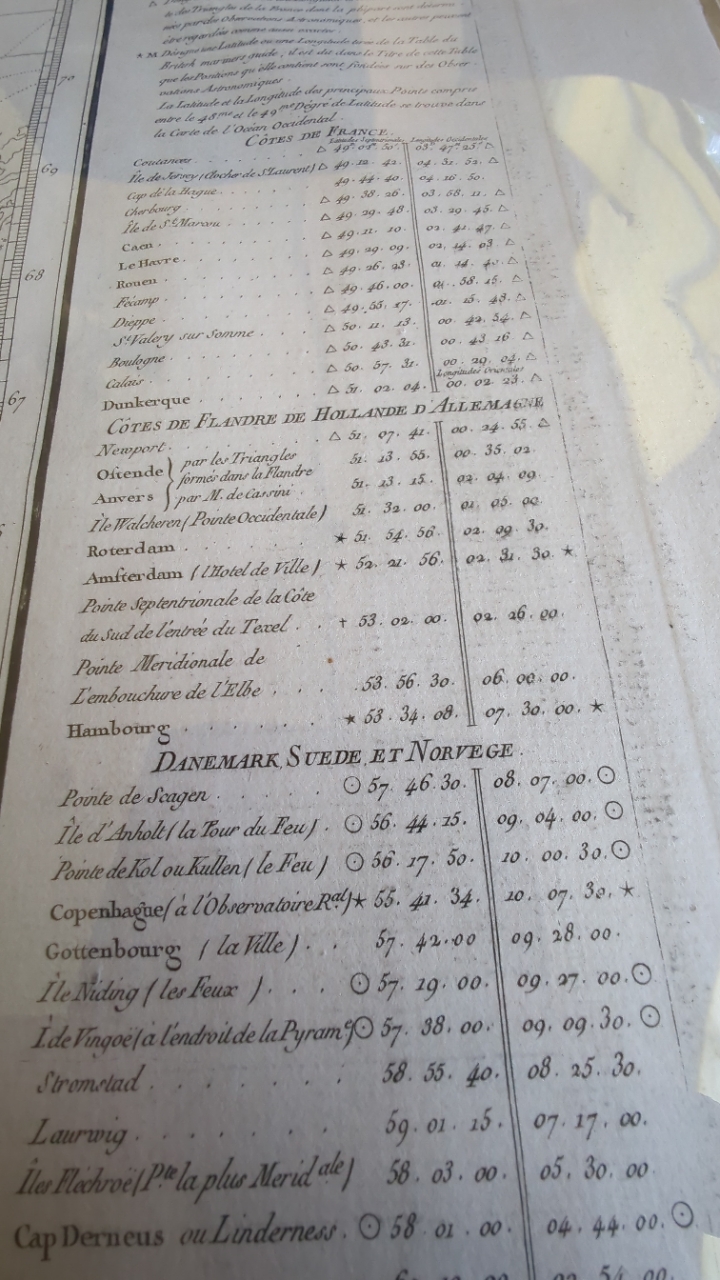 des Triangles de la France dont la plûpart
nées par des Observations Astronomiques, et les autres peuvent
être regardées comme aussi exactes.
★ M Designe une Latitude ou une Longitude tirée de la Table du
British mariners guide, il est dit dans le Titre de cette Table
que les Positions qu'elle contient sont fondées sur des Obser-
vations Astronomiques.
La Latitude et la Longitude des principaux Points compris
entre le 48me et le 49me Dégré de Latitude se trouve dans
la Carte de l'Océan Occidental.
CÔTES DE FRANCE.
Latitudes Septentrionales. Longitudes Occidentales
Coutances △ 49. 03. 50. 03. 47. 25. △
Île de Jersey (Clocher de St Laurent) △ 49. 12. 42. 04. 31. 52. △
Cap de la Hague 49. 44. 40. 04. 16. 50.
Cherbourg △ 49. 38. 26. 03. 58. 11. △
Île de St Marcou △ 49. 29. 48. 03. 29. 45. △
Caen △ 49. 11. 10. 02. 41. 47. △
Le Havre △ 49. 29. 09. 02. 14. 03. △
Rouen △ 49. 26. 23. 01. 14. △
Fécamp △ 49. 46. 00. 01. 58. 15. △
Dieppe △ 49. 55. 17. 01. 15. 43. △
St Valery sur Somme △ 50. 11. 13. 00. 42. 54. △
Boulogne △ 50. 43. 31. 00. 43. 16 △
Calais △ 50. 57. 31. 00. 29. 04. △
Longitudes Orientales
Dunkerque △ 51. 02. 04. 00. 02. 23. △
CÔTES DE FLANDRE DE HOLLANDE D'ALLEMAGNE
Newport △ 51. 07. 41. 00. 24. 55. △
Ostende } par les Triangles 51. 13. 55. 00. 35. 02.
formés dans la Flandre
Anvers } par M. de Cassini 51. 13. 15. 02. 04. 09.
Île Walcheren (Pointe Occidentale) 51. 32. 00. 01. 05. 00.
Roterdam ★ 51. 54. 56. 02. 09. 30.
Amsterdam (l'Hotel de Ville) ★ 52. 21. 56. 02. 31. 30. ★
Pointe Septentrionale de la Côte
du Sud de l'entrée du Texel † 53. 02. 00. 02. 26. 00.
Pointe Meridionale de
L'embouchure de l'Elbe 53. 56. 30. 06. 00. 00.
Hambourg ★ 53. 34. 08. 07. 30. 00. ★
DANEMARK, SUEDE, ET NORVEGE.
Pointe de Scagen ☉ 57. 46. 30. 08. 07. 00. ☉
Île d'Anholt (la Tour du Feu) ☉ 56. 44. 15. 09. 04. 00. ☉
Pointe de Kol ou Kullen (le Feu) ☉ 56. 17. 50. 10. 00. 30. ☉
Copenhague (à l'Observatoire Ral) ★ 55. 41. 34. 10. 07. 30. ★
Gottenbourg (la Ville) 57. 42. 00 09. 28. 00.
Île Niding (les Feux) ☉ 57. 19. 00. 09. 27. 00. ☉
I. de Vingoë (à l'endroit de la Pyrame) ☉ 57. 38. 00. 09. 09. 30. ☉
Stromstad 58. 55. 40. 08. 25. 30.
Laurwig 59. 01. 15. 07. 17. 00.
Îles Fléchroë (Pte la plus Meridale) 58. 03. 00. 05. 30. 00
Cap Derneus ou Linderness ☉ 58. 01. 00. 04. 44. 00. ☉
54. 00.
70
69
68
67